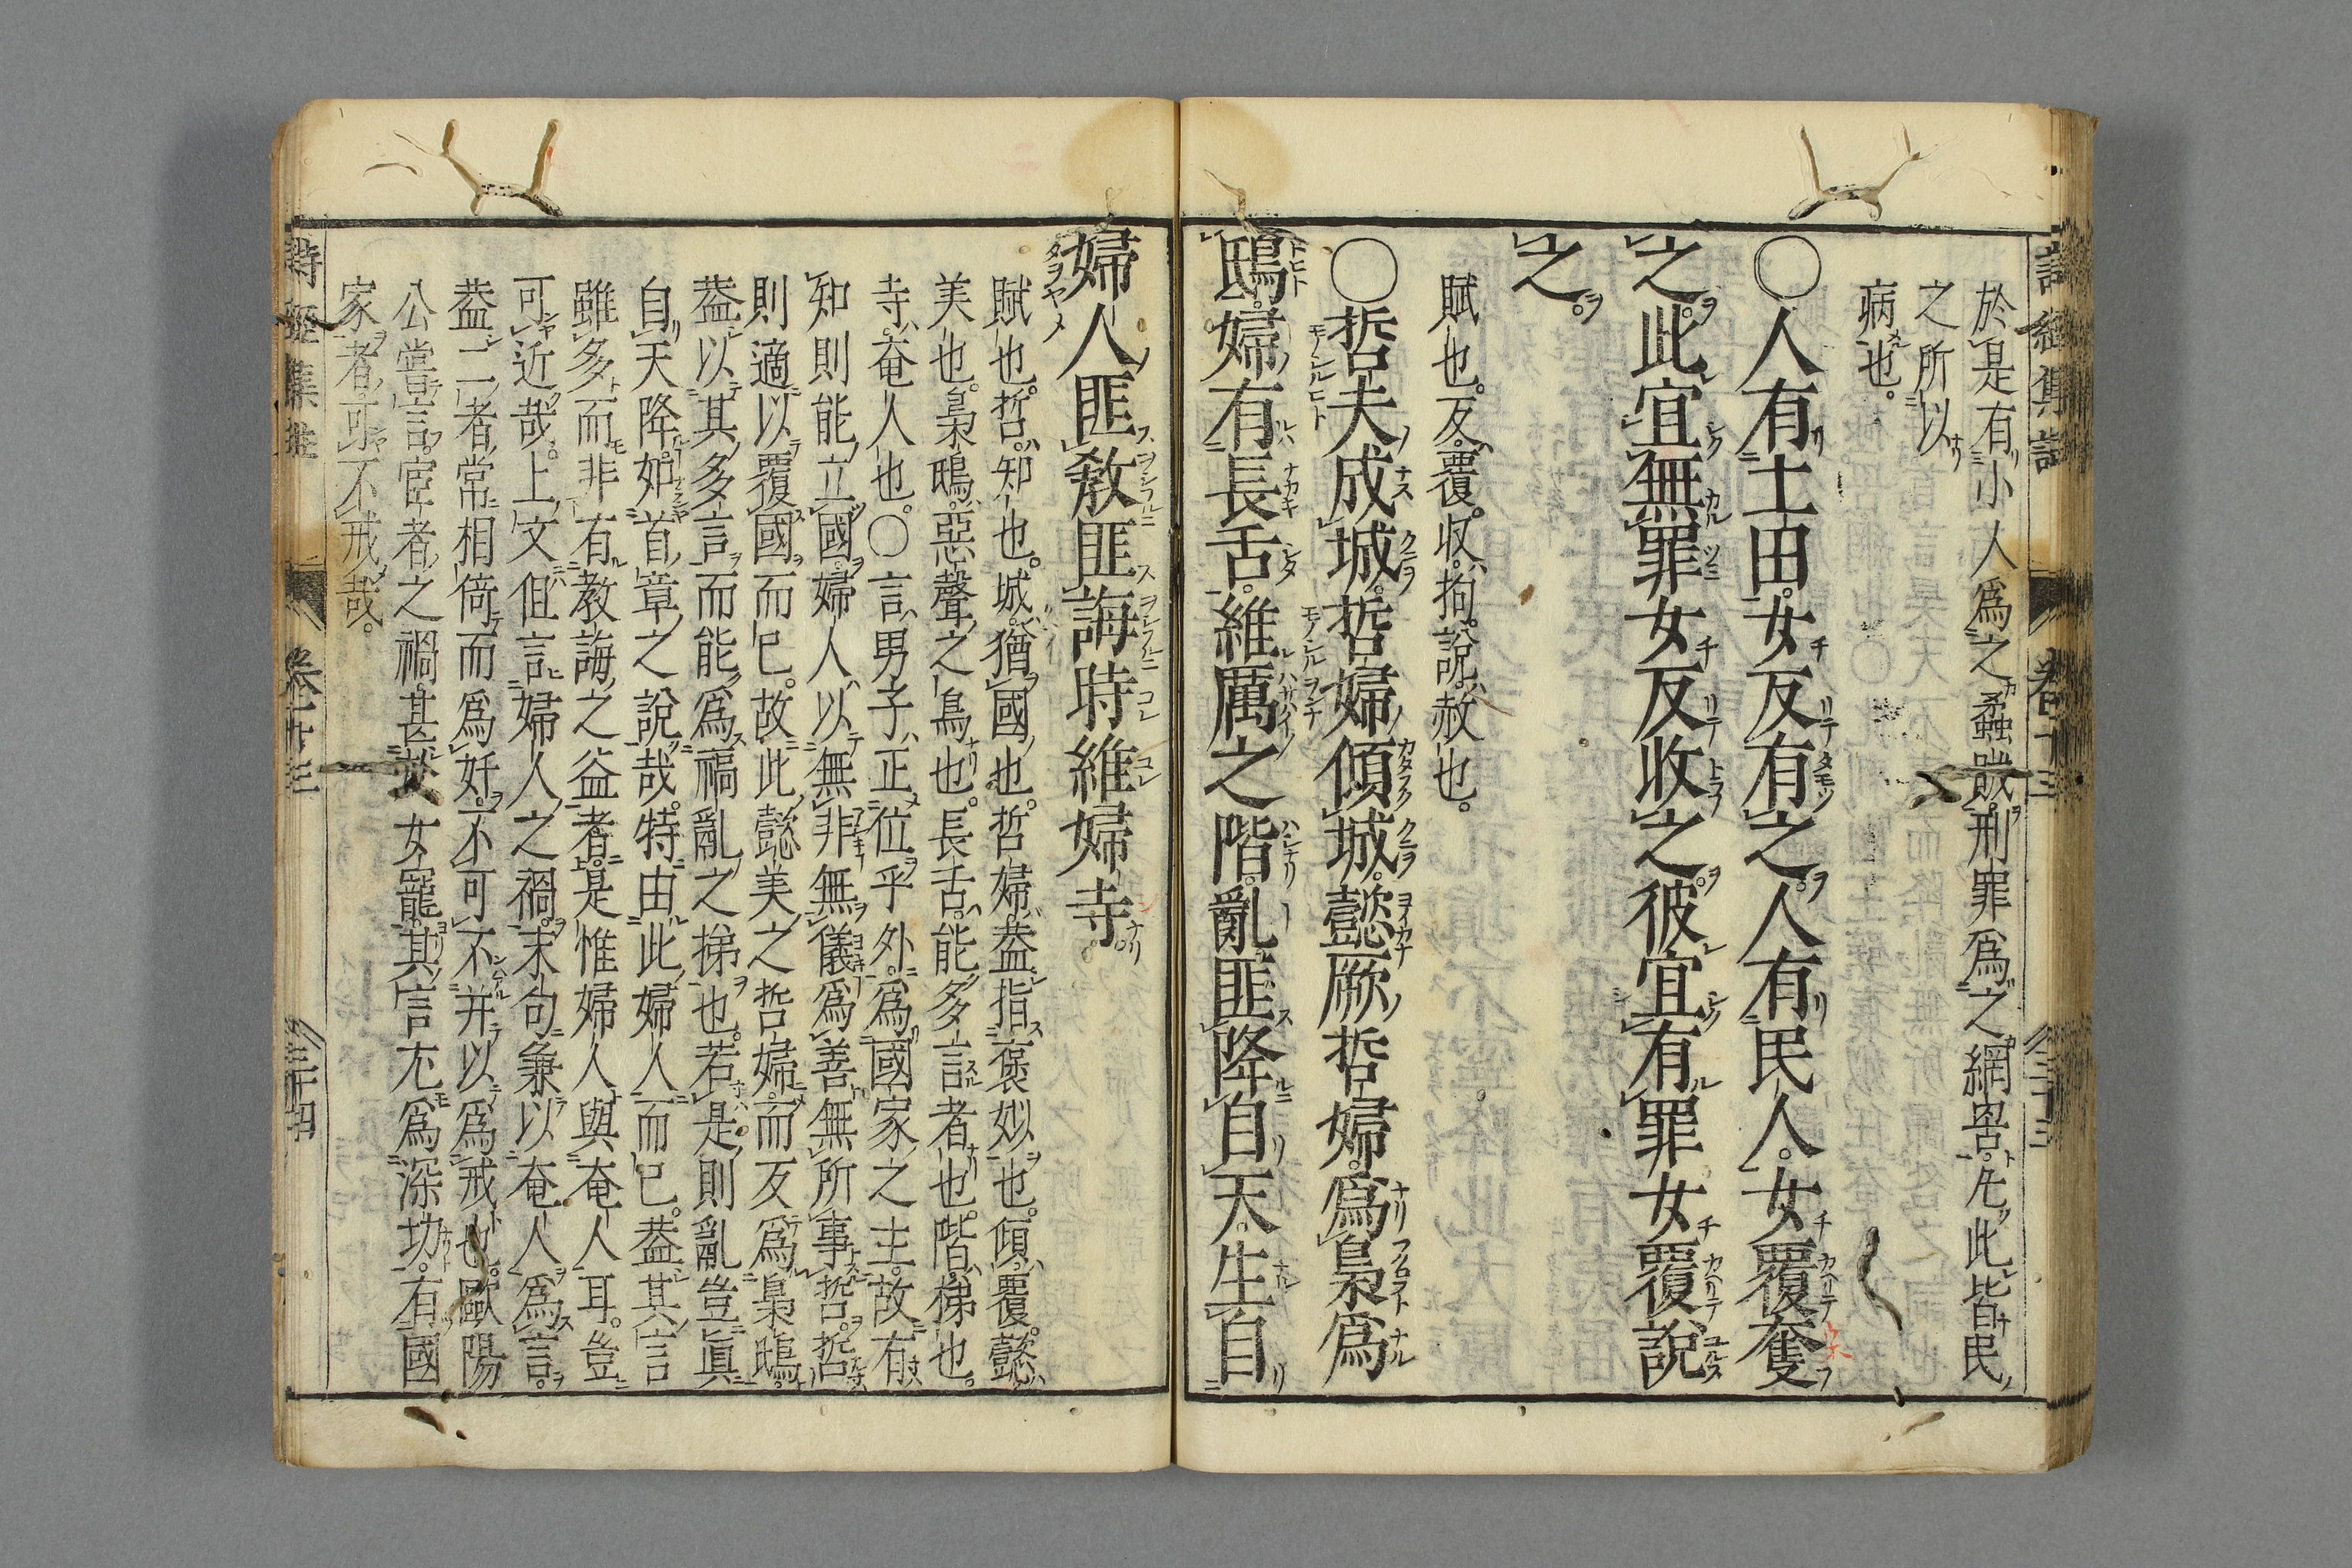 於是有小人爲之蟊賊。刑罪爲之網罟。凢此皆民
之所以
病也。
〇人有土田。女反有之。人有民人。女覆奪
之。此宜無罪女反收之。彼宜有罪女覆說
之。
賦也。反。覆。收。拘。說。赦也。
〇哲夫成城。哲婦傾城。懿厥哲婦。爲梟爲
鴟。婦有長舌。維厲之階。亂匪降自天。生自
婦人。匪敎匪誨。時維婦寺。
賦也。哲。知也。城。猶國也。哲婦。葢指褒姒也。傾。覆。懿。
美也。梟鴟。惡聲之鳥也。長舌。能多言者也。階。梯也。
寺。奄人也。〇言男子正位乎外。爲國家之主。故有
知則能立國。婦人以無非無儀爲善。無所事哲。哲
則適以覆國而已。故此懿美之哲婦。而反爲梟鴟。
葢以其多言而能爲禍亂之梯也。若是則亂豈眞
自天降。如首章之說哉。特由此婦人而已。葢其言
雖多。而非有教誨之益者。是惟婦人與奄人耳。豈
可近哉。上文但言婦人之禍。末句兼以奄人爲言。
葢二者常相倚而爲奸。不可不并以爲戒也。歐陽
公嘗言。宦者之禍。甚於女寵。其言尤爲深切。有國
家者。可不戒哉。
卷十三
三十三
詩經集註
卷十三
三十四